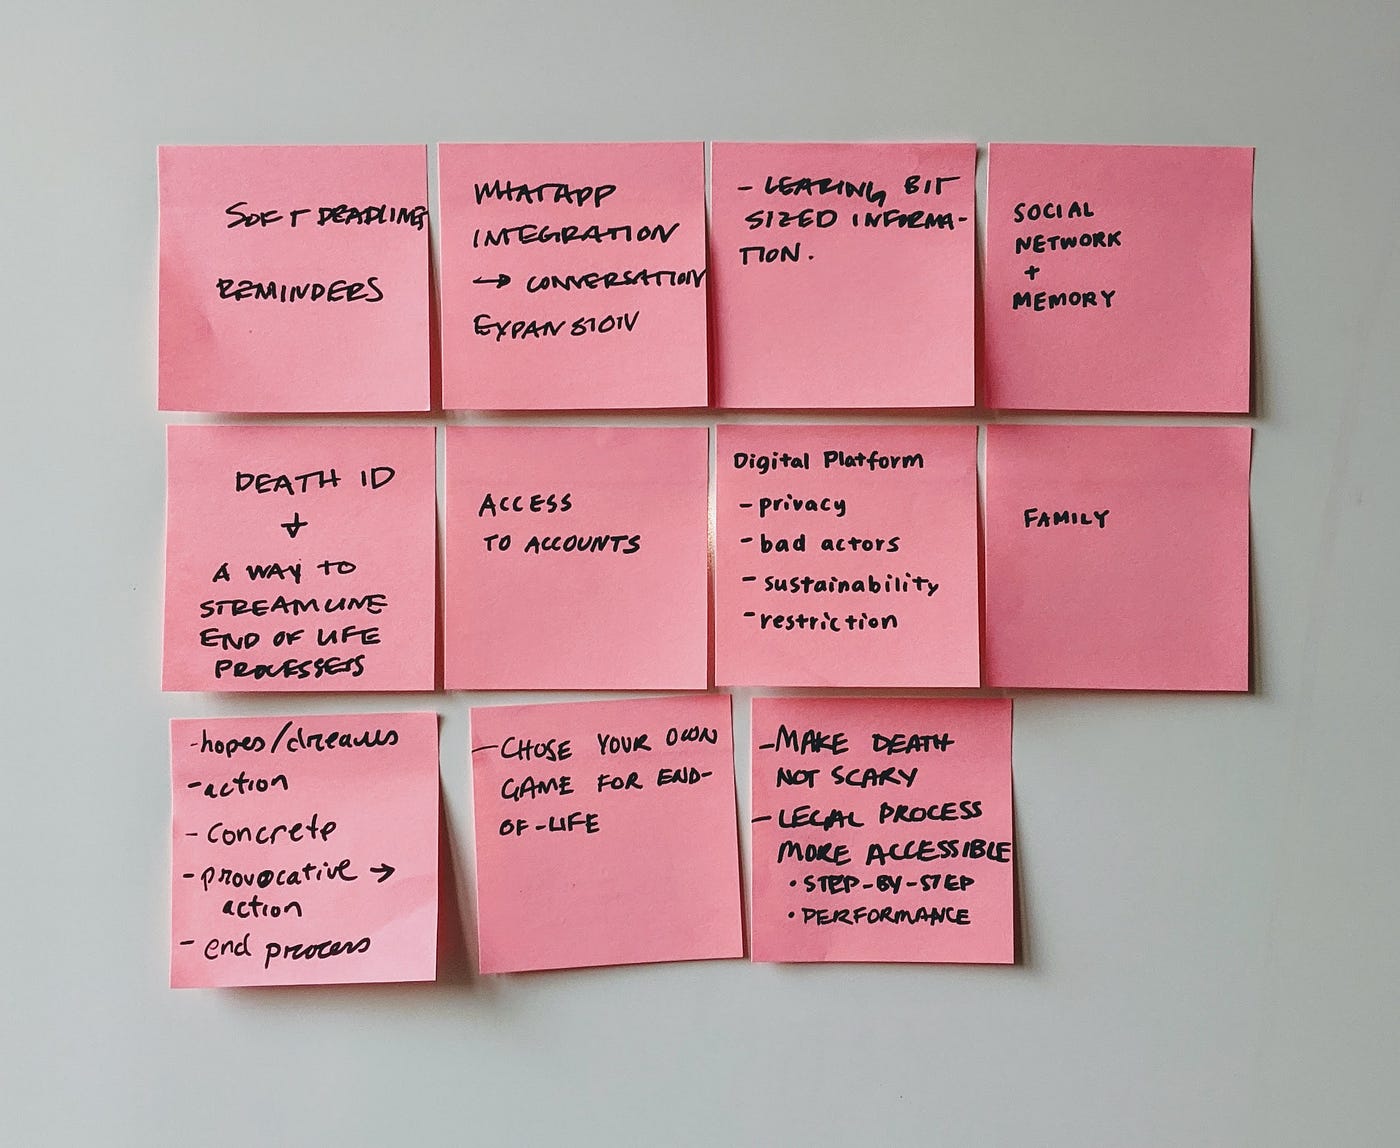 SOFT DEADLINE
REMINDERS
WHATAPP
INTEGRATION
→ CONVERSATION
EXPANSION
- LEARING BIT
SIZED INFORMA-
TION.
SOCIAL
NETWORK
+
MEMORY
DEATH ID
↓
A WAY TO
STREAMLINE
END OF LIFE
PROCESSES
ACCESS
TO ACCOUNTS
Digital Platform
- privacy
- bad actors
- sustainability
- restriction
FAMILY
- hopes/dreams
- action
- concrete
- provocative →
action
- end process
- CHOSE YOUR OWN
GAME FOR END-
OF-LIFE
- MAKE DEATH
NOT SCARY
- LEGAL PROCESS
MORE ACCESSIBLE
• STEP-BY-STEP
• PERFORMANCE